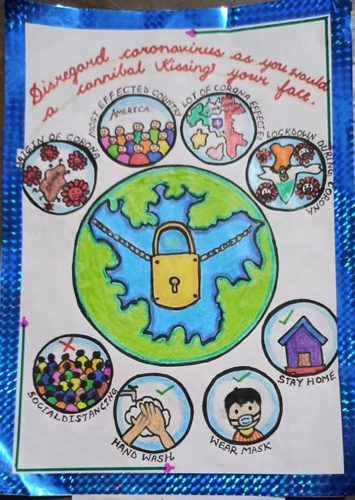 Disregard coronavirus as you would
a cannibal kissing your face.
MOST EFFECTED COUNTRY
AMERICA
LOT OF CORONA EFFECTED
ORIGIN OF CORONA
LOCKDOWN DURING CORONA
SOCIALDISTANCING
HAND WASH
WEAR MASK
STAY HOME